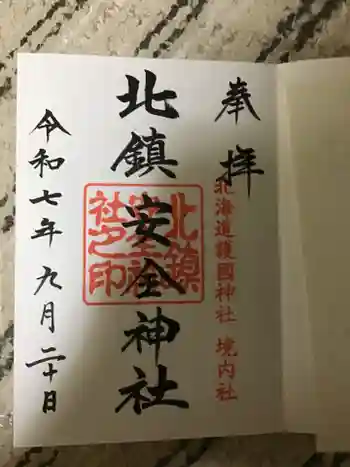 奉拝
北海道護國神社 境内社
北鎮安全神社
北鎮
安全神
社之印
令和七年九月二十日